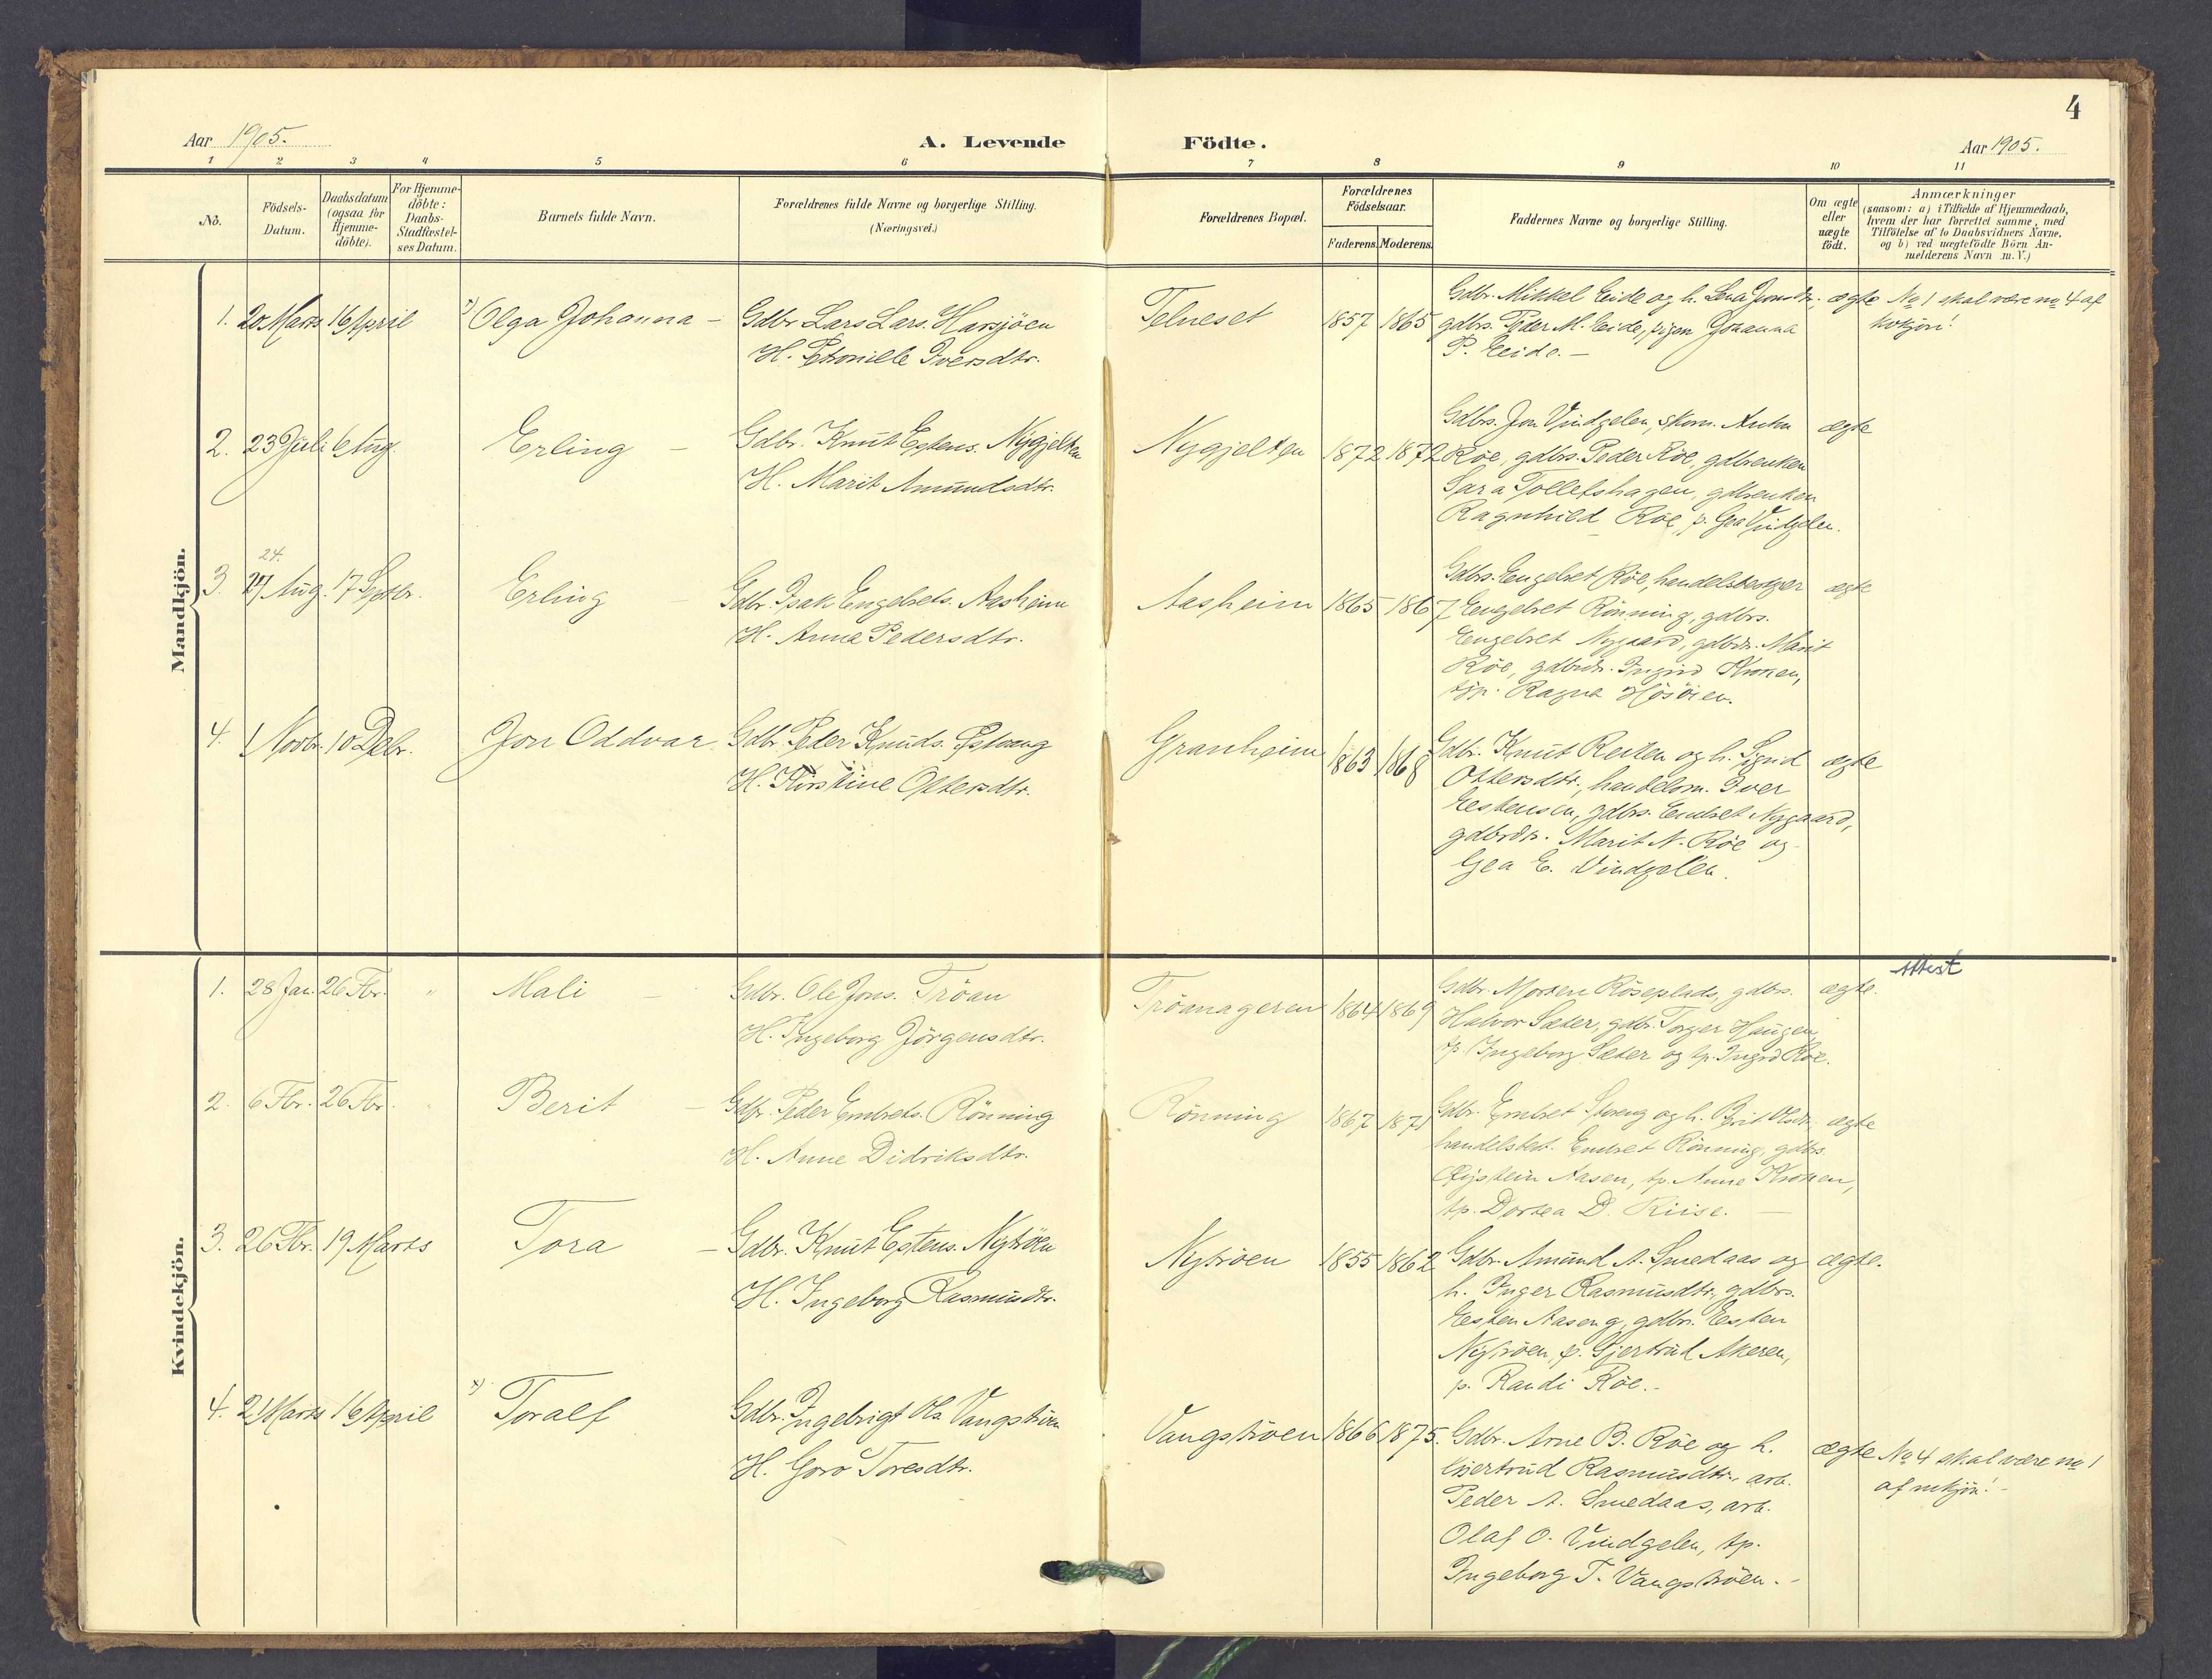 4
Aar 1905.
A. Levende Födte.
Aar 1905.
1 2 3 4 5 6 7 8 9 10 11
No.
Födsels-
Datum.
Daabsdatum
(ogsaa for
Hjemme-
döbte).
For Hjemme-
döbte:
Daabs-
Stadfæstel-
ses Datum.
Barnets fulde Navn.
Forældrenes fulde Navne og borgerlige Stilling.
(Næringsvei.)
Forældrenes Bopæl.
Forældrenes
Födselsaar.
Faderens. Moderens.
Faddernes Navne og borgerlige Stilling.
Om ægte
eller
uægte
födt.
Anmærkninger
(saasom: a) i Tilfælde af Hjemmedaab,
hvem der har forrettet samme, med
Tilföielse af to Daabsvidners Navne,
og b) ved uægtefödte Börn An-
melderens Navn m. V.)
Mandkjön.
1. 20 Marts 16 April
x) Olga Johanna –
Gdbr. Lars Lars. Harsjöen
H. Petonille Iversdtr.
Telneset
1857 1865
Gdbr. Mikkel Eide og h. Lena Jonsdtr.,
gdbrs. Peder M. Eide, pigen Johanna
P. Eide. –
ægte
No 1 skal være no 4 af
kvkjön!
2. 23 Juli 6 Aug.
Erling –
Gdbr. Knut Estens. Nygjelten
H. Marit Amundsdtr.
Nygjelten
1872 1872
Gdbrs. Jon Vindgelen, skom. Anton
Röe, gdbrs. Peder Röe, gdbrenken
Sara Tollefshagen, gdbrenken
Ragnhild Röe, p. Gea Vindgelen.
ægte
24.
3. 27 Aug. 17 Septbr.
Erling –
Gdbr. Isak Engebrets. Aasheim
H. Anna Pedersdtr.
Aasheim
1865 1867
Gdbrs. Engebret Röe, handelsbetjer
Engebret Rönning, gdbrs.
Engebret Nygaard, gdbrdr. Marit
Röe, gdbrdr. Ingrid Kroken,
tjp. Ragna Hösöien.
ægte
4. 1 Novbr. 10 Debr.
Jon Oddvar.
Gdbr. Peder Knuds. Östvang
H. Kirstine Ottersdtr.
Granheim
1863 1868
Gdbr. Knut Reiten og h. Sigrid
Ottersdtr., handelsm. Iver
Estensen, gdbrs. Embret Nygaard,
gdbrdr. Marit N. Röe og
Gea E. Vindgelen.
ægte
Kvindekjön.
1. 28 Jan. 26 Fbr. "
Mali –
Gdbr. Ole Jons. Tröan
H. Ingeborg Jörgensdtr.
Tröanageren
1864 1869
Gdbr. Morten Röseplads, gdbrs.
Halvor Sæter, gdbr. Torger Haugen,
tp. Ingeborg Sæter og tp. Ingrid Röe.
ægte.
Attest
2. 6 Fbr. 26 Fbr. "
Berit –
Gdbr. Peder Embrets. Rönning
H. Anne Didriksdtr.
Rönning
1867 1871
Gdbr. Embret Storeng og h. Brit Olsdtr.,
handelsbet. Embret Rönning, gdbrs.
Öistein Aasen, tp. Anne Kroken,
tp. Dortea D. Riise. –
ægte
3. 26 Fbr. 19 Marts
Tora –
Gdbr. Knut Estens. Nytröen
H. Ingeborg Rasmusdtr.
Nytröen
1855 1862
Gdbr. Amund A. Smedaas og
h. Inger Rasmusdtr., gdbrs.
Esten Aaseng, gdbrs. Esten
Nytröen, p. Gjertrud Akeren,
p. Randi Röe. –
ægte.
4. 21 Marts 16 April
x) Toralf
Gdbr. Ingebrigt Ols. Vangströen
H. Goro Toresdtr.
Vangströen
1866 1875.
Gdbr. Arne B. Röe og h.
Gjertrud Rasmusdtr., arb.
Peder A. Smedaas, arb.
Olaf O. Vindgelen, tp.
Ingeborg T. Vangströen. –
ægte
No 4 skal være no 1
af mkjön! –